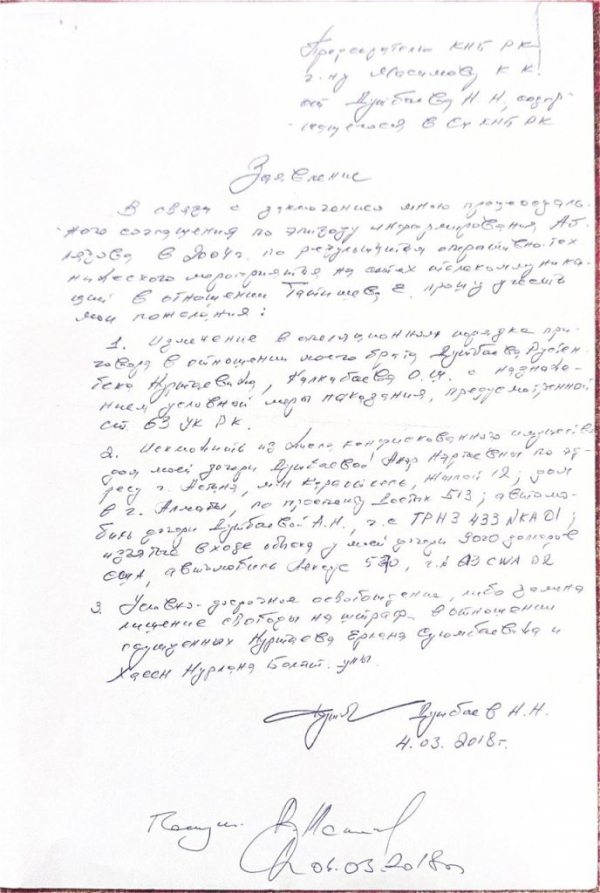 Председателю КНБ РК
г-ну Масимову К.К.
от Дутбаева Н.Н., содер-
жащегося в СИ КНБ РК
Заявление
В связи с заключением мною процессуаль-
ного соглашения по эпизоду информирования Аб-
лязова в 2004г. по результатам оперативно-тех-
нического мероприятия на сетях телекоммуника-
ций в отношении Татишева Е. прошу учесть
мои пожелания:
1. Изменение в апелляционном порядке при-
говора в отношении моего брата Дутбаева
Нуртаевича, Калкабаева О. с назначе-
нием условной меры наказания, предусмотренной
ст. 63 УК РК.
2. Исключить из числа конфискованного имущества
дом моей дочери Дутбаевой Нартаевны по ад-
ресу г. Астана, м-н Караоткель, 12; дом
в г. Алматы, по проспекту Достык 513; автомо-
биль дочери Дутбаевой А.Н., г.н 433 NKA 01;
изъятые в ходе обыска у моей дочери долларов
США, автомобиль Лексус 570, CWA 02
3. Условно-досрочное освобождение, либо замена
лишение свободы на штраф в отношении
осужденных Нуртаева Ерлана Суюмбаевича и
Хасен Нурлана Болат-улы.
Дутбаев Н.Н.
4.03.2018г.
06.03.2018г